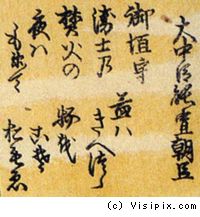 大中臣能宣朝臣
御垣守
衛士乃
焚火の
夜ハ
もえて
昼ハ
きへつゝ
物越
(c) Visipix.com